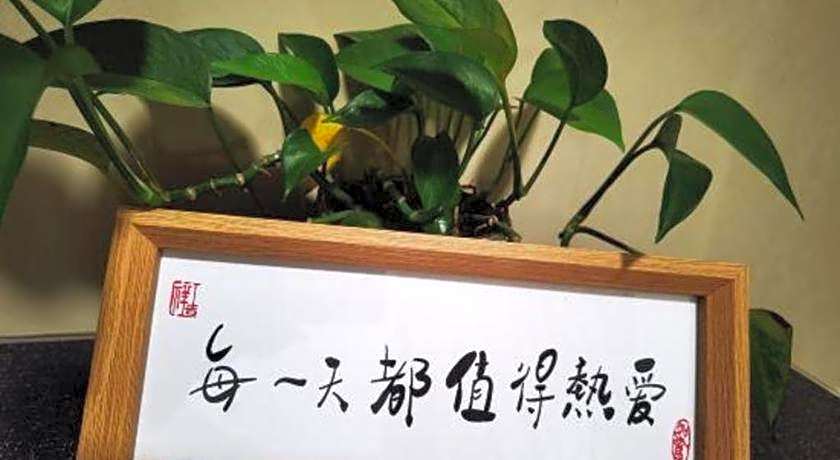 每一天都值得熱爱